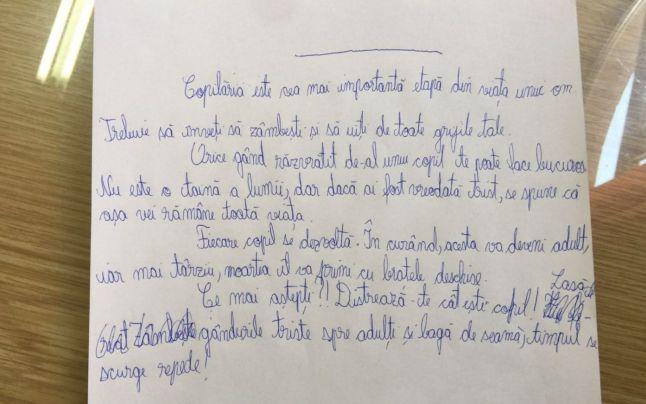 Copilăria este cea mai importantă etapă din viața unui om.
Trebuie să înveți să zâmbești și să uiți de toate grijile tale.
Orice gând răzvrătit de-al unui copil te poate face bucuros
Nu este o taină a lumii, dar dacă ai fost vreodată trist, se spune că
așa vei rămâne toată viața.
Fiecare copil se dezvoltă. În curând, acesta va deveni adult,
iar mai târziu, moartea îl va primi cu brațele deschise.
Ce mai aștepți?! Distrează-te cât ești copil! Lasă
gândurile triste spre adulți și bagă de seamă, timpul se
scurge repede!